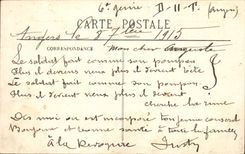 6e génie D-11-P. (Angers)
CARTE POSTALE
Angers le 8 1915
CORRESPONDANCE Mon cher Auguste
Le soldat fait comme son pompon
Plus il devient vieux plus il devient bête
Le soldat fait comme son pompon
Plus il devient vieux plus il devient
cherche la rime
De moi ou est incorporé ton jeune conscrit
Bonjour et bonne santé à toute la famille
à la Revoyure Justy